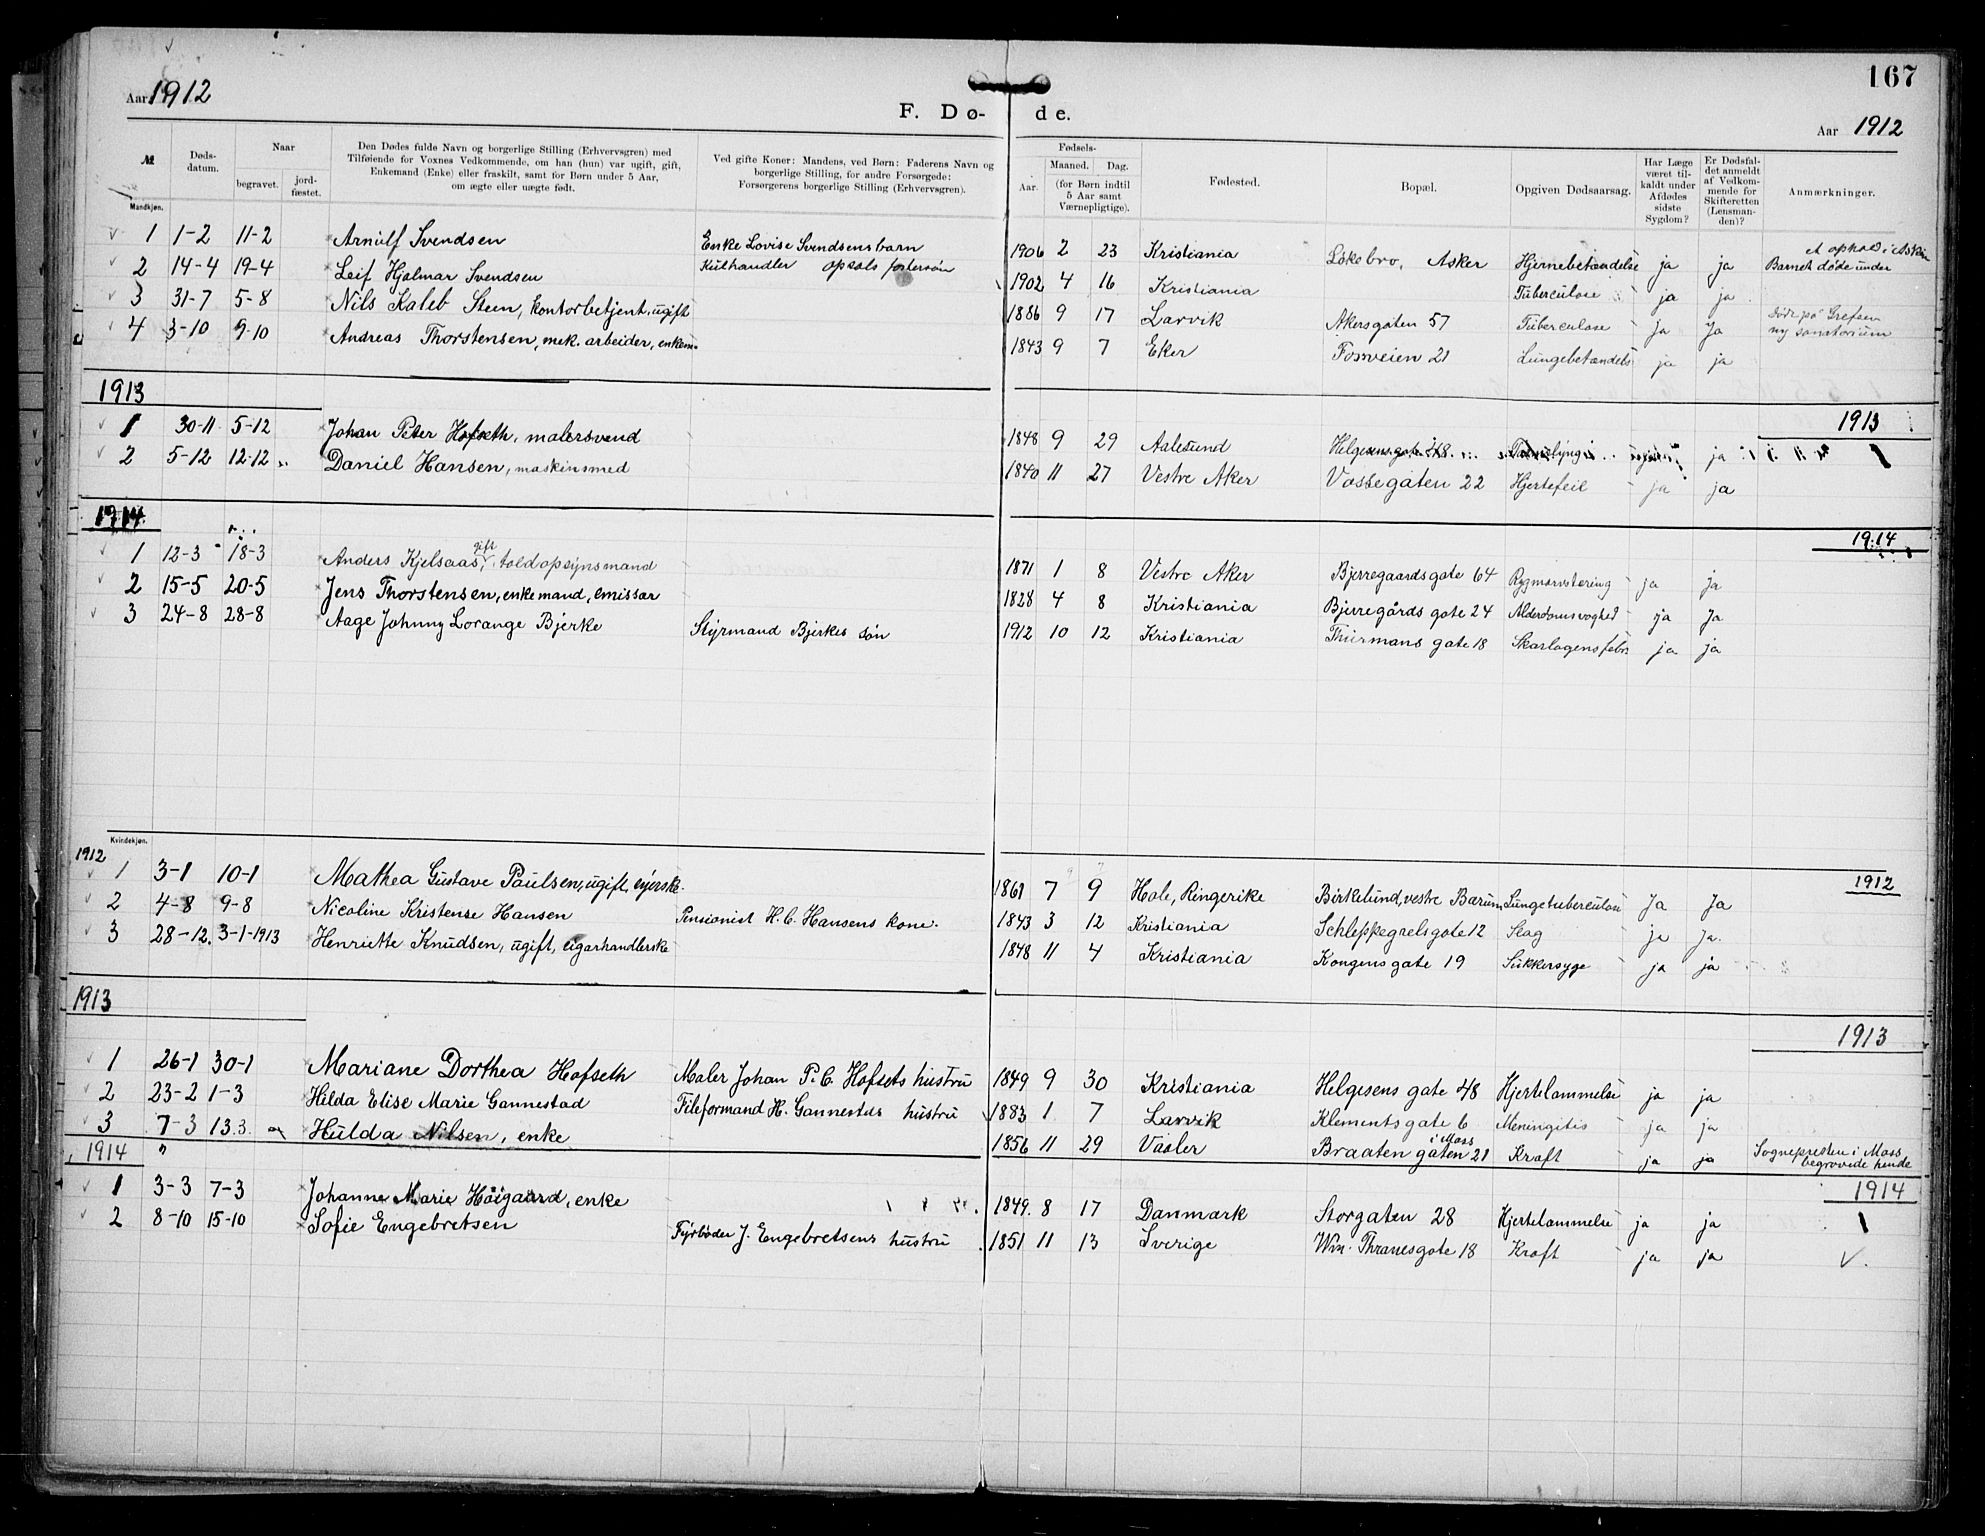 167
Aar 1912
F. Dø- de.
Aar 1912
№
Døds-datum.
Naar
begravet.
jord-fæstet.
Den Dødes fulde Navn og borgerlige Stilling (Erhvervsgren) med
Tilføiende for Voxnes Vedkommende, om han (hun) var ugift, gift,
Enkemand (Enke) eller fraskilt, samt for Børn under 5 Aar,
om ægte eller uægte født.
Ved gifte Koner: Mandens, ved Børn: Faderens Navn og
borgerlige Stilling, for andre Forsørgede:
Forsørgerens borgerlige Stilling (Erhvervsgren).
Fødsels-
Aar.
Maaned.
Dag.
(for Børn indtil
5 Aar samt
Værnepligtige).
Fødested.
Bopæl.
Opgiven Dødsaarsag.
Har Læge
været til-
kaldt under
Afdødes
sidste
Sygdom?
Er Dødsfal-
det anmeldt
af Vedkom-
mende for
Skifteretten
(Lensman-
den)?
Anmærkninger.
Mandkjøn.
1 1-2 11-2 Arnulf Svendsen Enke Lovise Svendsens barn 1906 2 23 Kristiania Løkebro, Asker Hjernebetændelse ja ja Barnet døde under et ophold i Asker
2 14-4 19-4 Leif Hjalmar Svendsen Kulhandler Opsals fostersøn 1902 4 16 Kristiania Tuberculose ja ja
3 31-7 5-8 Nils Kaleb Steen, kontorbetjent, ugift 1886 9 17 Larvik Akersgaten 57 Tuberculose ja Ja Døde på Grefsen ny sanatorium
4 3-10 9-10 Andreas Thorstensen, mek. arbeider, enkem. 1843 9 7 Eker Fossveien 21 Lungebetændels ja ja
1913
1913
1 30-11 5-12 Johan Peter Hofseth, malersvend 1848 9 29 Aalesund Helgesens gate 48 ja
2 5-12 12-12 Daniel Hansen, maskinsmed 1840 11 27 Vestre Aker Vossegaten 22 Hjertefeil ja ja
1914
1914
1 12-3 18-3 Anders Kjelsaas, gift, toldopsynsmand 1871 1 8 Vestre Aker Bjerregaardsgate 64 Rygmarvstering ja ja
2 15-5 20-5 Jens Thorstensen, enkemand, emissær 1828 4 8 Kristiania Bjerregårds gate 24 Alderdomsvaghed ja Ja
3 24-8 28-8 Aage Johnny Lorange Bjerke Styrmand Bjerkes søn 1912 10 12 Kristiania Thurmans gate 18 Skarlagensfebr. ja ja
Kvindekjøn.
1912
1912
1 3-1 10-1 Mathea Gustave Paulsen, ugift, syerske 1861 7 9 Hole, Ringerike Birkelund, vestre Bærum Lungetuberculose Ja Ja
2 4-8 9-8 Nicoline Kristense Hansen Pensionist H. C. Hansens kone. 1843 3 12 Kristiania Schleppegrelsgate 12 Slag ja Ja.
3 28-12. 3-1-1913 Henriette Knudsen, ugift, cigarhandlerske 1848 11 4 Kristiania Kongens gate 19 Sukkersyge ja ja
1913
1913
1 26-1 30-1 Mariane Dorthea Hofseth Maler Johan P. C. Hofsets hustru 1849 9 30 Kristiania Helgesens gate 48 Hjertelammelse ja ja
2 23-2 1-3 Hilda Elise Marie Gannestad Fileformand H. Gannestads hustru 1883 1 7 Larvik Klements gate 6 Meningitis ja ja
3 7-3 13.3. Hulda Nilsen, enke 1856 11 29 Vaaler Braaten gaten 21 i Moss Kræft ja ja Sognepresten i Moss begravede hende
1914
1914
1 3-3 7-3 Johanne Marie Høigaard, enke 1849. 8 17 Danmark Storgaten 28 Hjertelammelse ja ja
2 8-10 15-10 Sofie Engebretsen Fyrbøder J. Engebretsens hustru 1851 11 13 Sverige Wm. Thranesgate 18 Kræft ja ja